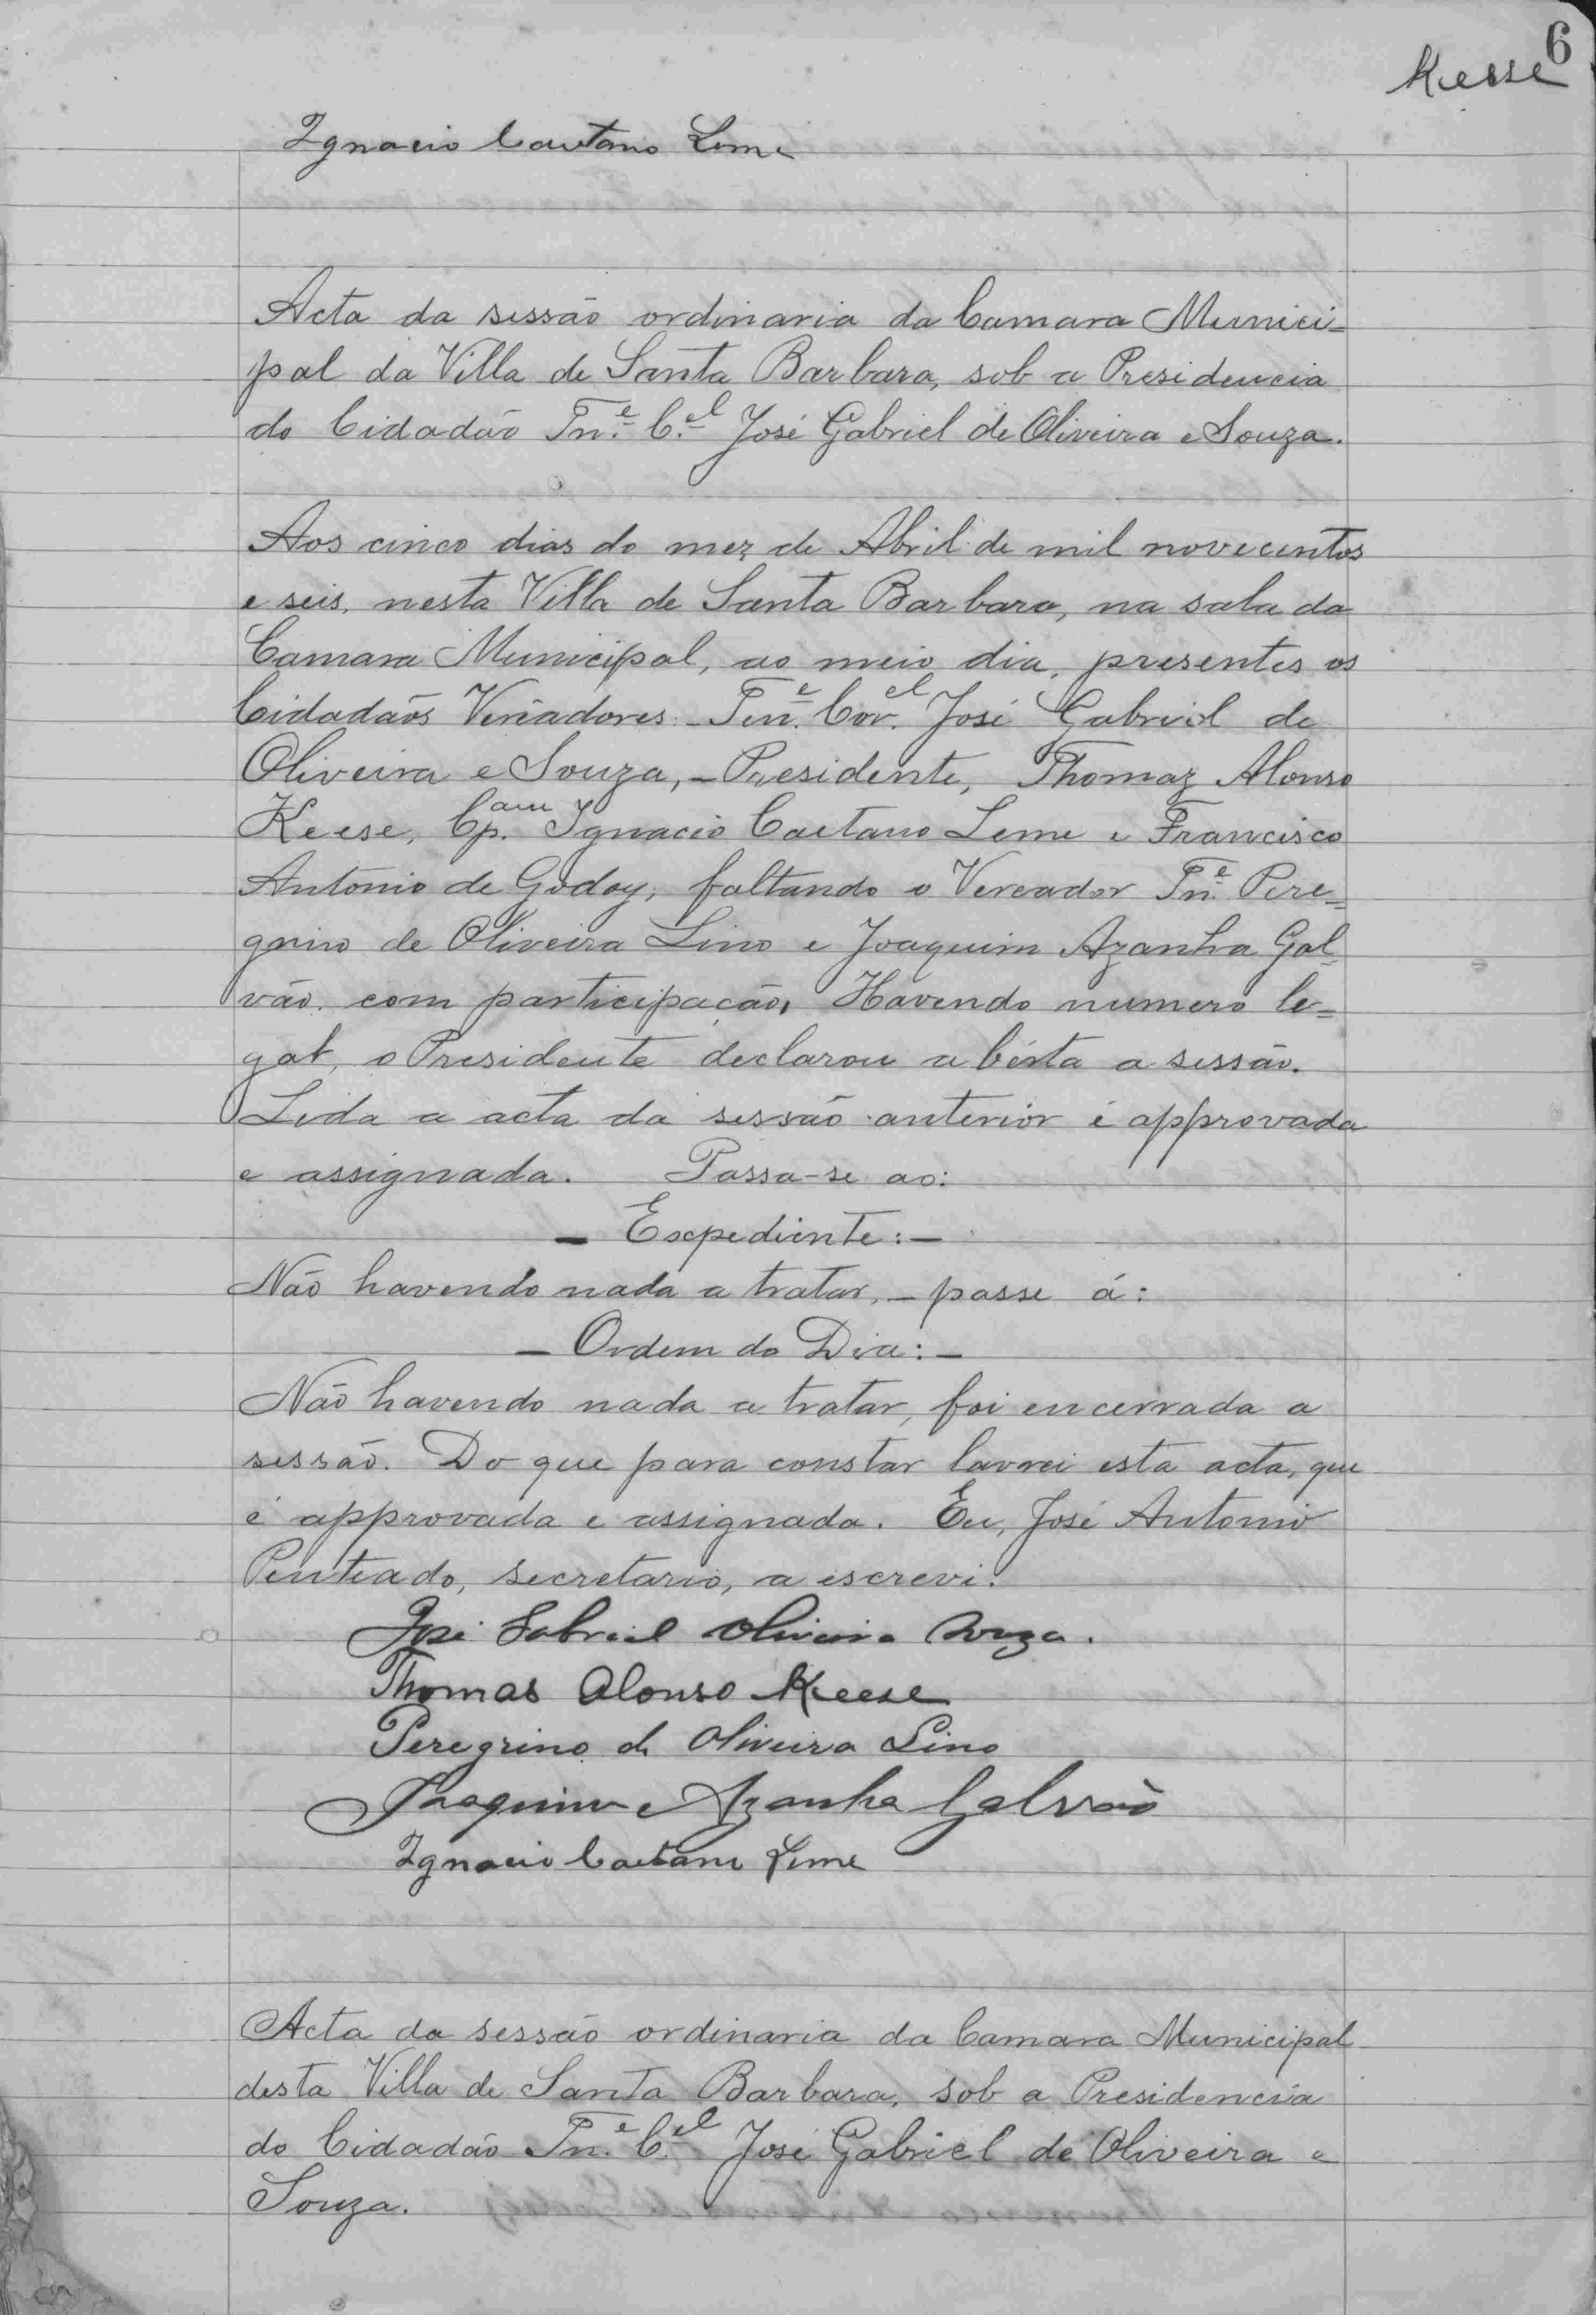 6
Keese
Ignacio Caetano Leme
Acta da sessão ordinaria da Camara Munici=
pal da Villa de Santa Barbara, sob a Presidencia
do Cidadão Tn.e C.el José Gabriel de Oliveira e Souza.
Aos cinco dias do mez de Abril de mil novecentos
e seis, nesta Villa de Santa Barbara, na sala da
Camara Municipal, ao meio dia, presentes os
Cidadãos Vereadores Ten.e Cor.el José Gabriel de
Oliveira e Souza, - Presidente, Thomaz Alonso
Keese, Cp.am Ignacio Caetano Leme e Francisco
Antonio de Godoy, faltando o Vereador Tn.e Pere=
grino de Oliveira Lino e Joaquim Azanha Gal=
vão. com participação, Havendo numero le=
gal, o Presidente declarou abérta a sessão.
Lida a acta da sessão anterior é approvada
e assignada. Passa-se ao:
- Expediente: -
Não havendo nada a tratar, - passe á:
- Ordem do Dia: -
Não havendo nada a tratar, foi encerrada a
sessão. Do que para constar lavrei esta acta, que
é approvada e assignada. Eu, José Antonio
Penteado, secretario, a escrevi.
José Gabriel Oliveira Souza.
Thomas Alonso Keese
Peregrino de Oliveira Lino
Joaquim Azanha Galvão
Ignacio Caetano Leme
Acta da sessão ordinaria da Camara Municipal
desta Villa de Santa Barbara, sob a Presidencia
do Cidadão Tn.e C.el José Gabriel de Oliveira e
Souza.